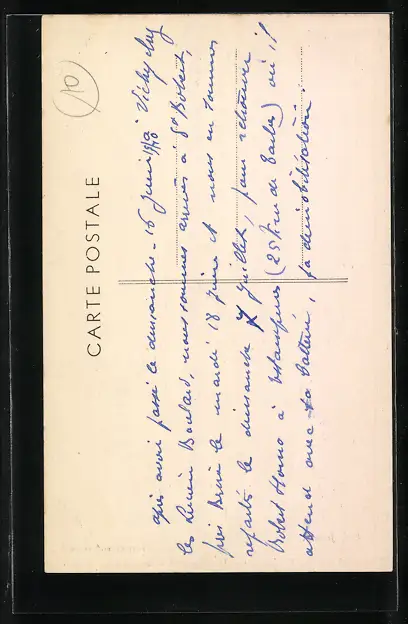 10
CARTE POSTALE
après avoir passé le dimanche - 16 juin 1940 à Vichy chez
les Lucien Boulard, nous sommes arrivés à St Robert,
près Brive le mardi 18 juin et nous en sommes
repartis le dimanche 7 juillet, pour retrouver
Robert Homo à Etampes (25 rue de) où il
attend avec sa batterie, sa démobilisation.